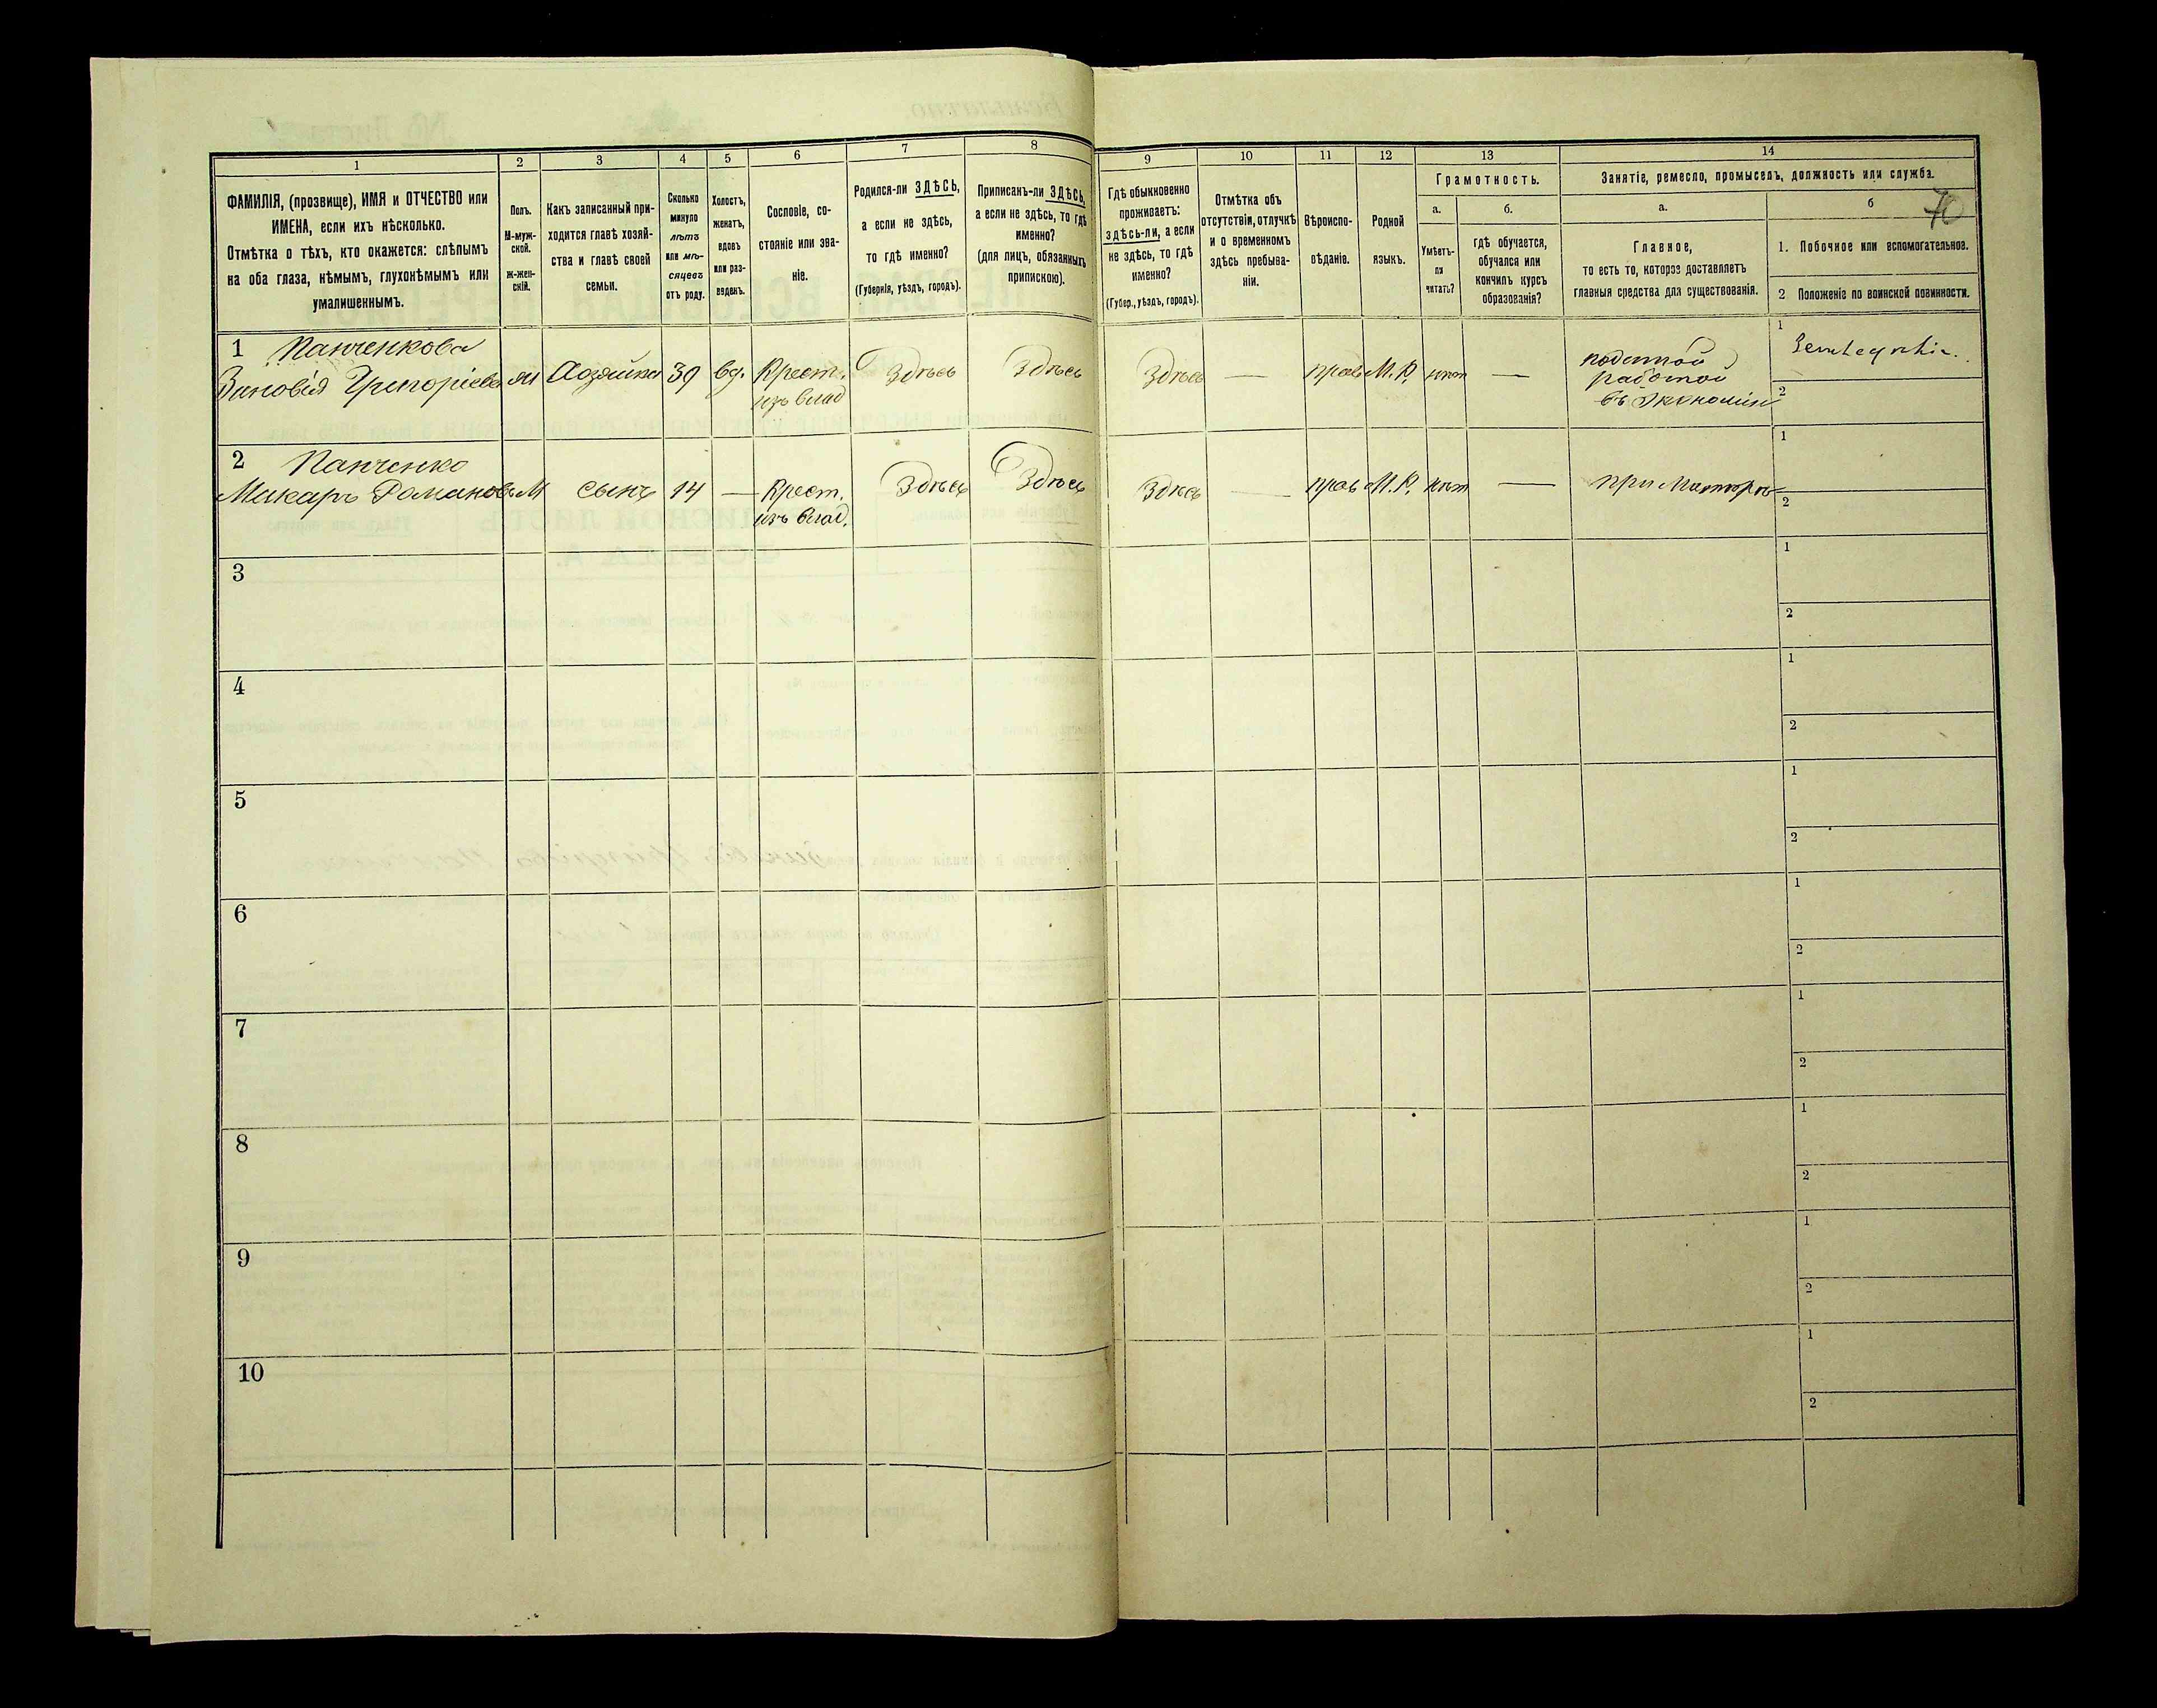 70
1
2
3
4
5
6
7
8
ФАМИЛІЯ, (прозвище), ИМЯ и ОТЧЕСТВО или
ИМЕНА, если ихъ нѣсколько.
Отмѣтка о тѣхъ, кто окажется: слѣпымъ
на оба глаза, нѣмымъ, глухонѣмымъ или
умалишеннымъ.
Полъ.
М-муж-
ской.
ж-жен-
скій.
Какъ записанный при-
ходится главѣ хозяй-
ства и главѣ своей
семьи.
Сколько
минуло
лѣтъ
или мѣ-
сяцевъ
отъ роду.
Холостъ,
женатъ,
вдовъ
или раз-
веденъ.
Сословіе, со-
стояніе или зва-
ніе.
Родился-ли ЗДѢСЬ,
а если не здѣсь,
то гдѣ именно?
(Губернія, уѣздъ, городъ).
Приписанъ-ли ЗДѢСЬ,
а если не здѣсь, то гдѣ
именно?
(для лицъ, обязанныхъ
припискою).
9
10
11
12
13
14
Гдѣ обыкновенно
проживаетъ:
здѣсь-ли, а если
не здѣсь, то гдѣ
именно?
(Губер., уѣздъ, городъ).
Отмѣтка объ
отсутствіи, отлучкѣ
и о временномъ
здѣсь пребыва-
ніи.
Вѣроиспо-
вѣданіе.
Родной
языкъ.
Грамотность.
а.
б.
Умѣетъ-
ли
читать?
гдѣ обучается,
обучался или
кончилъ курсъ
образованія?
Занятіе, ремесло, промыселъ, должность или служба.
а.
б
Главное,
то есть то, которое доставляетъ
главныя средства для существованія.
1. Побочное или вспомогательное.
2 Положеніе по воинской повинности.
1 Панченкова
Зиновія Григоріева ж Хозяйка 39 вд. Крест. Здѣсь Здѣсь Здѣсь — прав М.Р. нѣтъ —
изъ влад
поденной
работой
въ Экономіи
1
2
2 Панченко
Макаръ Романовъ М сынъ 14 — Крест. Здѣсь Здѣсь Здѣсь — прав М.Р. нѣтъ — при Матери
изъ влад.
1
2
3
1
2
4
1
2
5
1
2
6
1
2
7
1
2
8
1
2
9
1
2
10
1
2